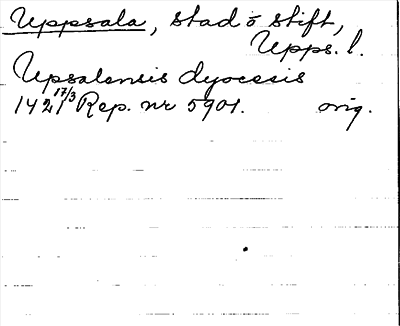 Uppsala, stad o stift,
Upps. l.
Upsalensis dyocesis
1421 17/3 Rep. nr 5901. orig.